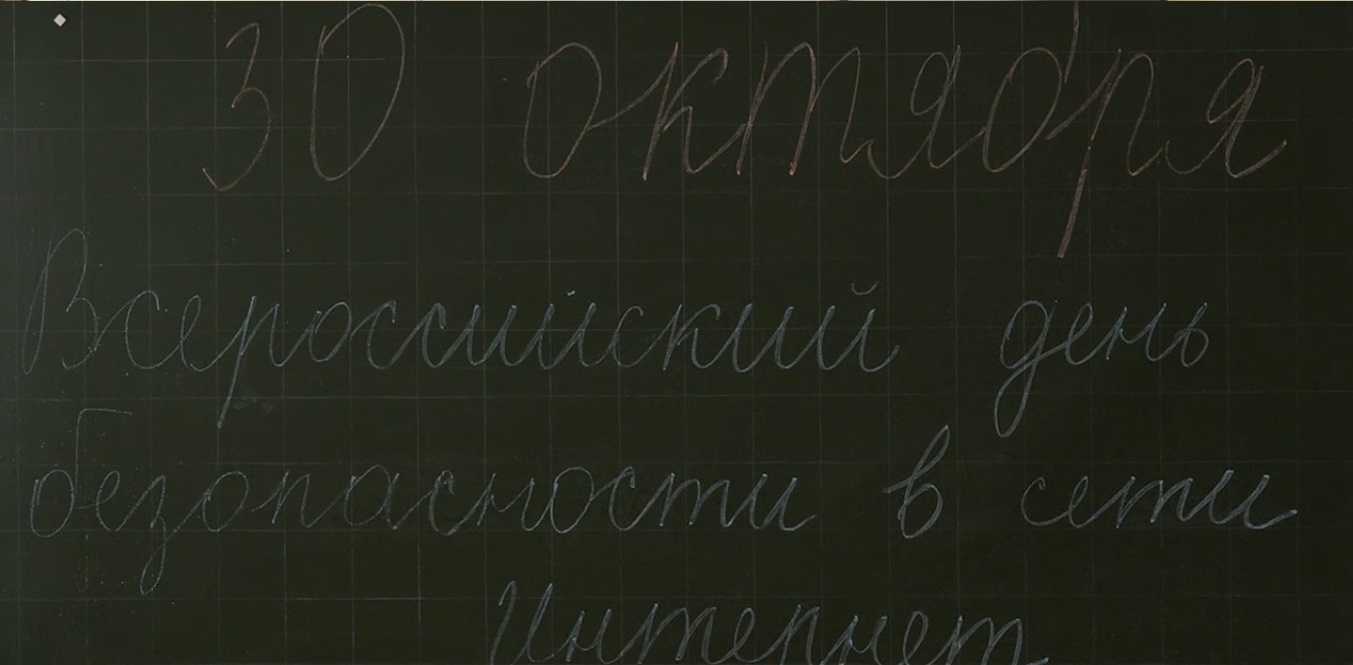 30 октября
Всероссийский день
безопасности в сети
Интернет